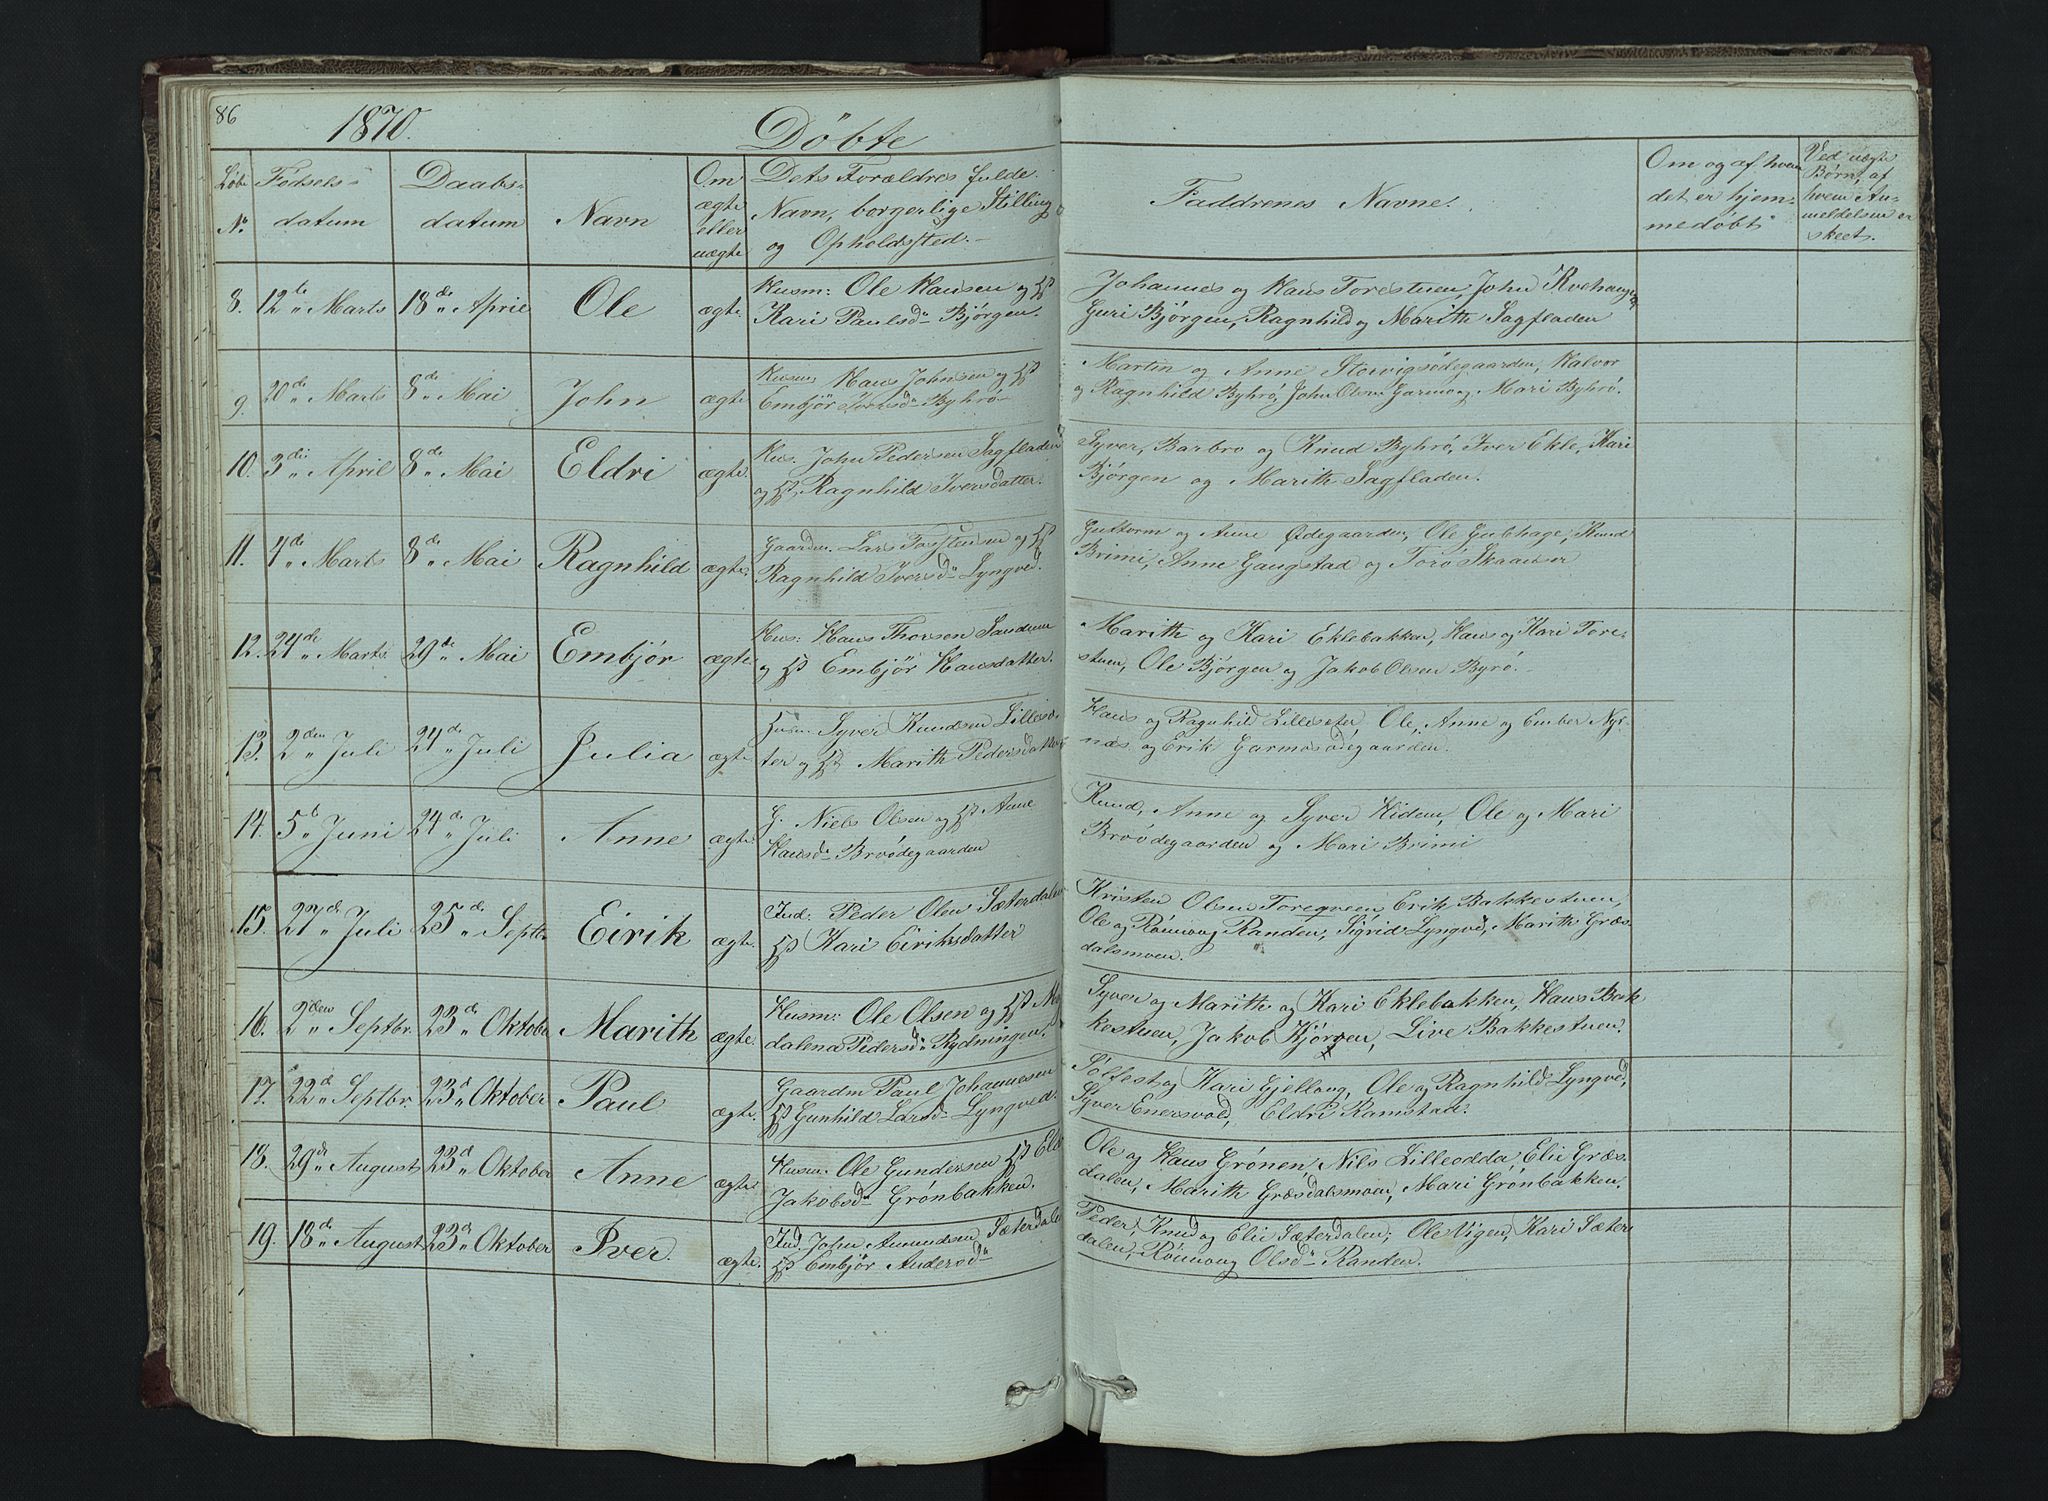 86
1870.
Döbte
Löbe No
Födsels-datum
Daabs-datum
Navn
Om ægte eller uægte
Dets Forældres fulde Navn, borgerlige Stilling og Opholdssted.
Faddrenes Navne.
Om og af hvem det er hjemmedöbt
Ved uægte Börn, af hvem Anmeldelsen er skeet.
8. 12te Marts 18de April Ole ægte Husm: Ole Hansen og Hst
Kari Paulsdr Björgen.
Johannes og Hans Torestuen, John Kvehaugen
Guri Björgen, Ragnhild og Marith Sagfladen
9. 20de Marts 8de Mai John ægte Husm: Hans Johnsen og Hst
Embjör Iversdr Byhrö
Martin og Anne Storvigsödegaarden, Halvor
og Ragnhild Byhrö, John Olsen Garmo og Mari Byhrö.
10. 3die April 8de Mai Eldri ægte. Hus. John Pedersen Sagfladen
og Hst, Ragnhild Iversdatter.
Syver, Barbro og Knud Byhrö, Iver Ekle, Kari
Björgen og Marith Sagfladen.
11. 4de Marts 8de Mai Ragnhild ægte. Gaardm. Lars Torstensen og Hst
Ragnhild Iversdr Lyngved.
Guttorm og Anne Ödegaarden, Ole Gabhage, Knud
Brimi, Anne Gaugstad og Torö Skaanser
12. 24de Marts 29de Mai Embjör ægte Hus: Hans Thorsen Sandnes
og Hst Embjör Hansdatter.
Marith og Kari Eklebakken, Hans og Kari Tore-
stuen, Ole Björgen og Jakob Olsen Byrö.
13. 2den Juli 24de Juli Julia ægte Husm. Syver Knudsen Lillesæ-
ter og Hst Marith Pedersdatter
Hans og Ragnhild Lillesæter, Ole, Anne og Ember Nyr-
næs og Erik Garmosödegaarden.
14. 5te Juni 24de Juli Anne ægte. G. Niels Olsen og Hst Anne
Hansdr Brödegaarden
Knud, Anne og Syver Hidem, Ole og Mari
Brödegaarden og Mari Brimi
15. 27de Juli 25de Septbr Eirik ægte. Ind: Peder Olsen Sæterdalen
Hst Kari Eiriksdatter
Kristen Olsen Toreqveen Erik Bakkestuen,
Ole og Rönnoug Randen, Sigrid Lyngved, Marith Græs-
dalsmoen.
16. 2den Septbr. 23de Oktober Marith ægte. Husm: Ole Olsen og Hst Mag
dalena Pedersdr Rydningen.
Syver og Marith og Kari Eklebakken, Hans Bak-
kestuen, Jakob Kjörven, Live Bakkestuen.
17. 22d Septbr. 23d Oktober Paul ægte. Gaardm Paul Johannesen
Hst Gunhild Larsdr Lyngved.
Solfest og Kari Gjelloug, Ole og Ragnhild Lyngved,
Syver Enersvold, Eldri Ramstad.
18. 29de August 23d Oktober Anne ægte Husm: Ole Gundersen Hst Eldri
Jakobsdr Grönbakken.
Ole og Hans Grönen, Nils Lilleodda, Elie Græs-
dalen, Marith Græsdalsmoen, Mari Grönbakken.
19. 18de August 23d Oktober Iver. ægte. Ind. John Amundsen Sæterdalen
Hst Embjör Andersdr
Peder, Knud og Elie Sæterdalen, Ole Vigen, Kari Sæter
dalen, Rönnoug Olsdr Randen.